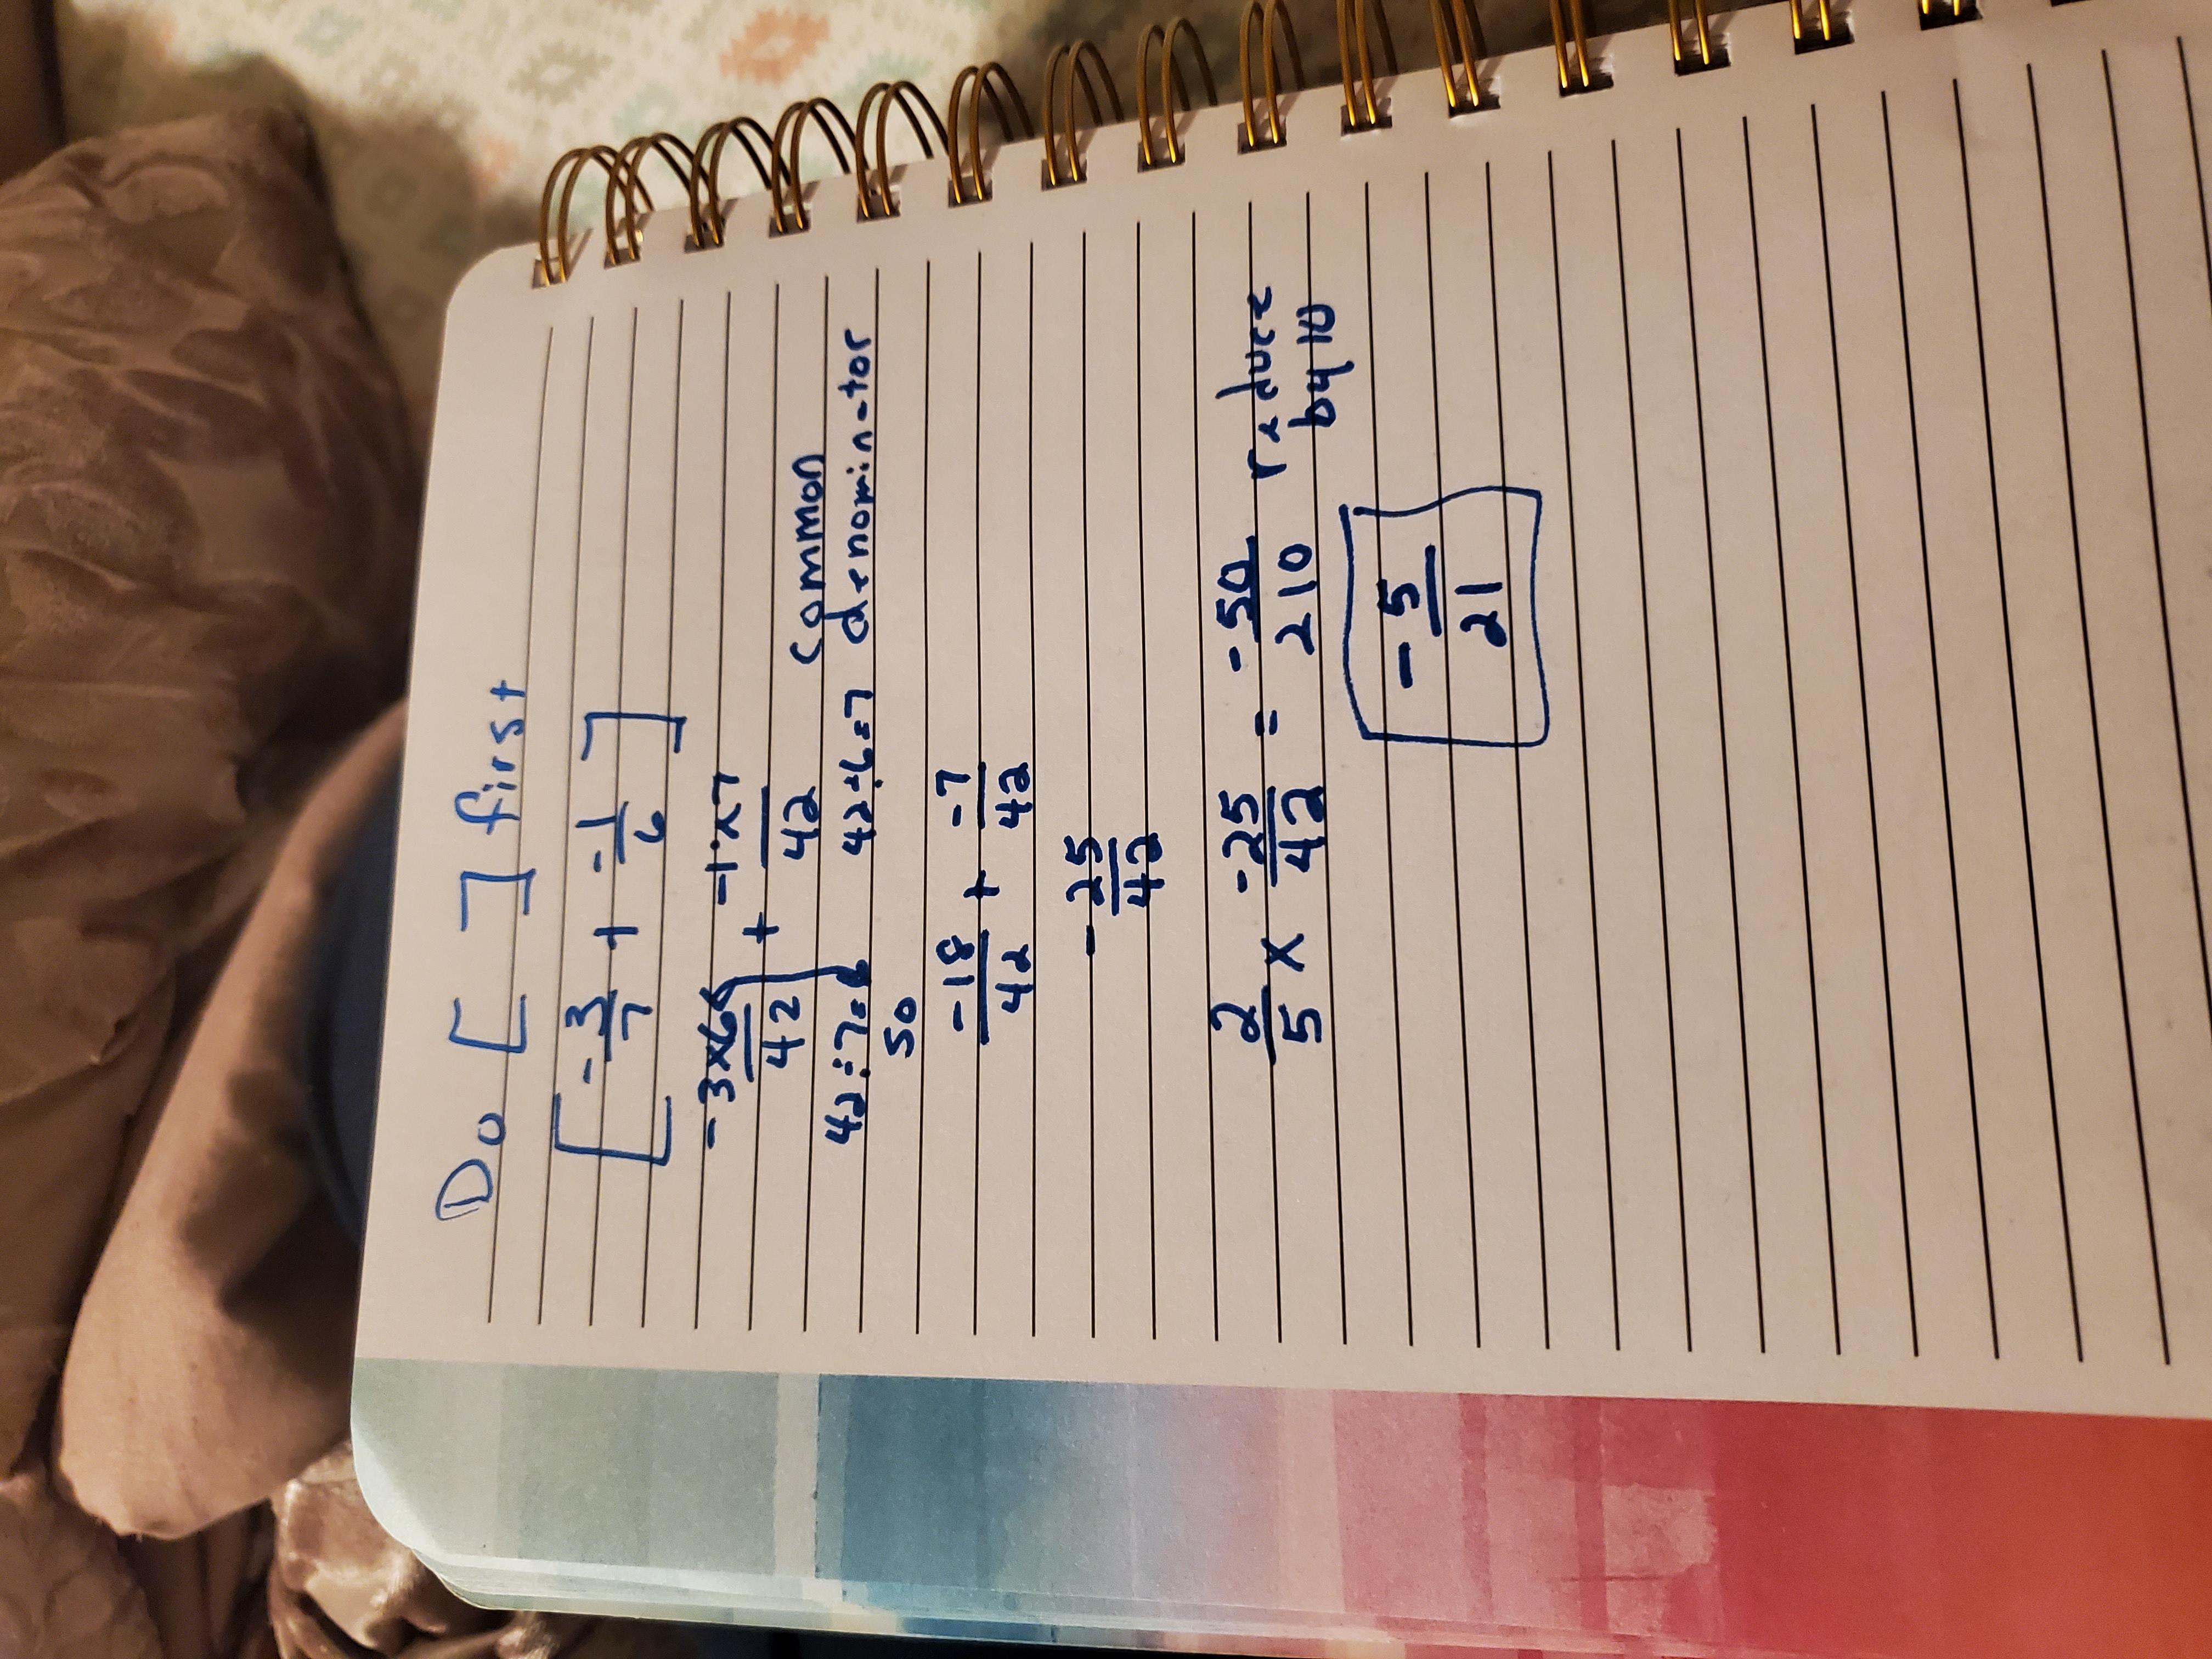 Do [ ] first
[ -3/7 + -1/6 ]
-3x6/42 + -1x7/42
common
42÷7=6 42÷6=7 denomin-tor
so
-18/42 + -7/42
-25/42
2/5 x -25/42 = -50/210 reduce
by 10
-5/21